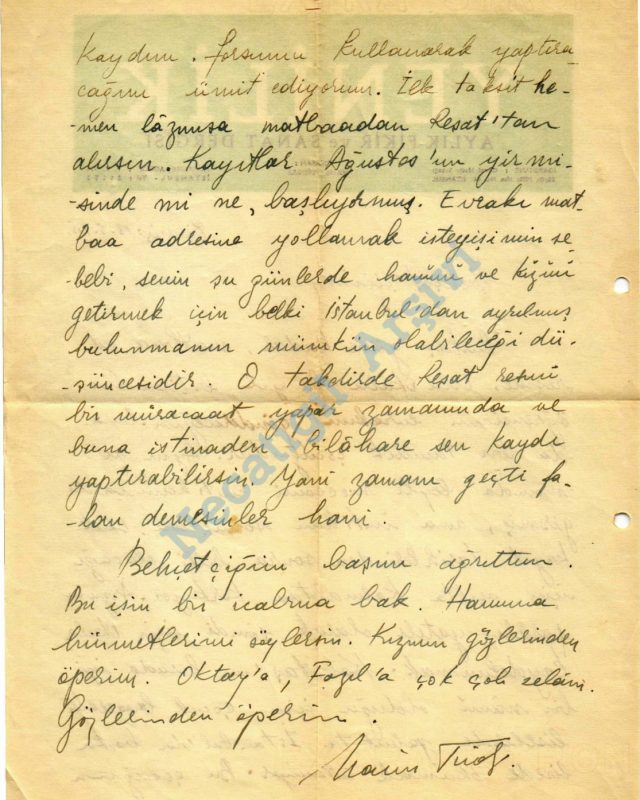 kaydını. forsunu kullanarak yaptıra
cağını ümit ediyorum. İlk taksit he-
-men lâzımsa matbaadan Reşat'tan
alırsın. Kayıtlar Ağustos'un yirmi-
sinde mi ne, başlıyormuş. Evrakı mat-
baa adresine yollamak isteyişimin se-
-bebi, senin şu günlerde hanımı ve kızını
getirmek için belki İstanbul'dan ayrılmış
bulunmanın mümkün olabileceği dü-
-şüncesidir. O takdirde Reşat resmî
bir müracaat yapar zamanında ve
buna istinaden bilâhare sen kaydı
yaptırabilirsin. Yani zamanı geçti fa-
-lan demesinler hani.
Behçetçiğim başını ağrıttım.
Bu işin bir icabına bak. Hanıma
hürmetlerimi söylersin. Kızının gözlerinden
öperim. Oktay'a, Fazıl'a çok çok selâm.
Gözlerinden öperim.
Naim Tirali
YENİLİK
AYLIK FİKİR ve SANAT DERGİSİ
Necatigil Arşivi